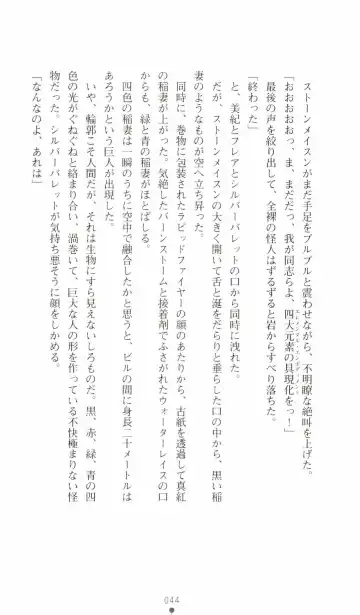 ストーンメイスンがまだ手足をブルブルと震わせながら、不明瞭な絶叫を上げた。
「おおおおおっ、ま、まだだっ、我が同志らよ、四大元素の具現化をっ！」
最後の声を絞り出して、全裸の怪人はずるずると岩からすべり落ちた。
「終わった」
と、美紀とフレアとシルバーバレットの口から同時に洩れた。
だが、ストーンメイスンの大きく開いて舌と涎をだらりと垂らした口の中から、黒い稲
妻のようなものが空へ立ち昇った。
同時に、巻物に包装されたラピッドファイヤーの顔のあたりから、古紙を透過して真紅
の稲妻が上がった。気絶したバーンストームと接着剤でふさがれたウォーターレイスの口
からも、緑と青の稲妻がほとばしる。
四色の稲妻は一瞬のうちに空中で融合したかと思うと、ビルの間に身長二十メートルは
あろうかという巨人が出現した。
いや、輪郭こそ人間だが、それは生物にすら見えないしろものだ。黒、赤、緑、青の四
色の光がぐねぐねと絡まり合い、渦巻いて、巨大な人の形を作っている不快極まりない怪
物だった。シルバーバレットが気持ち悪そうに顔をしかめる。
「なんなのよ、あれは」
044